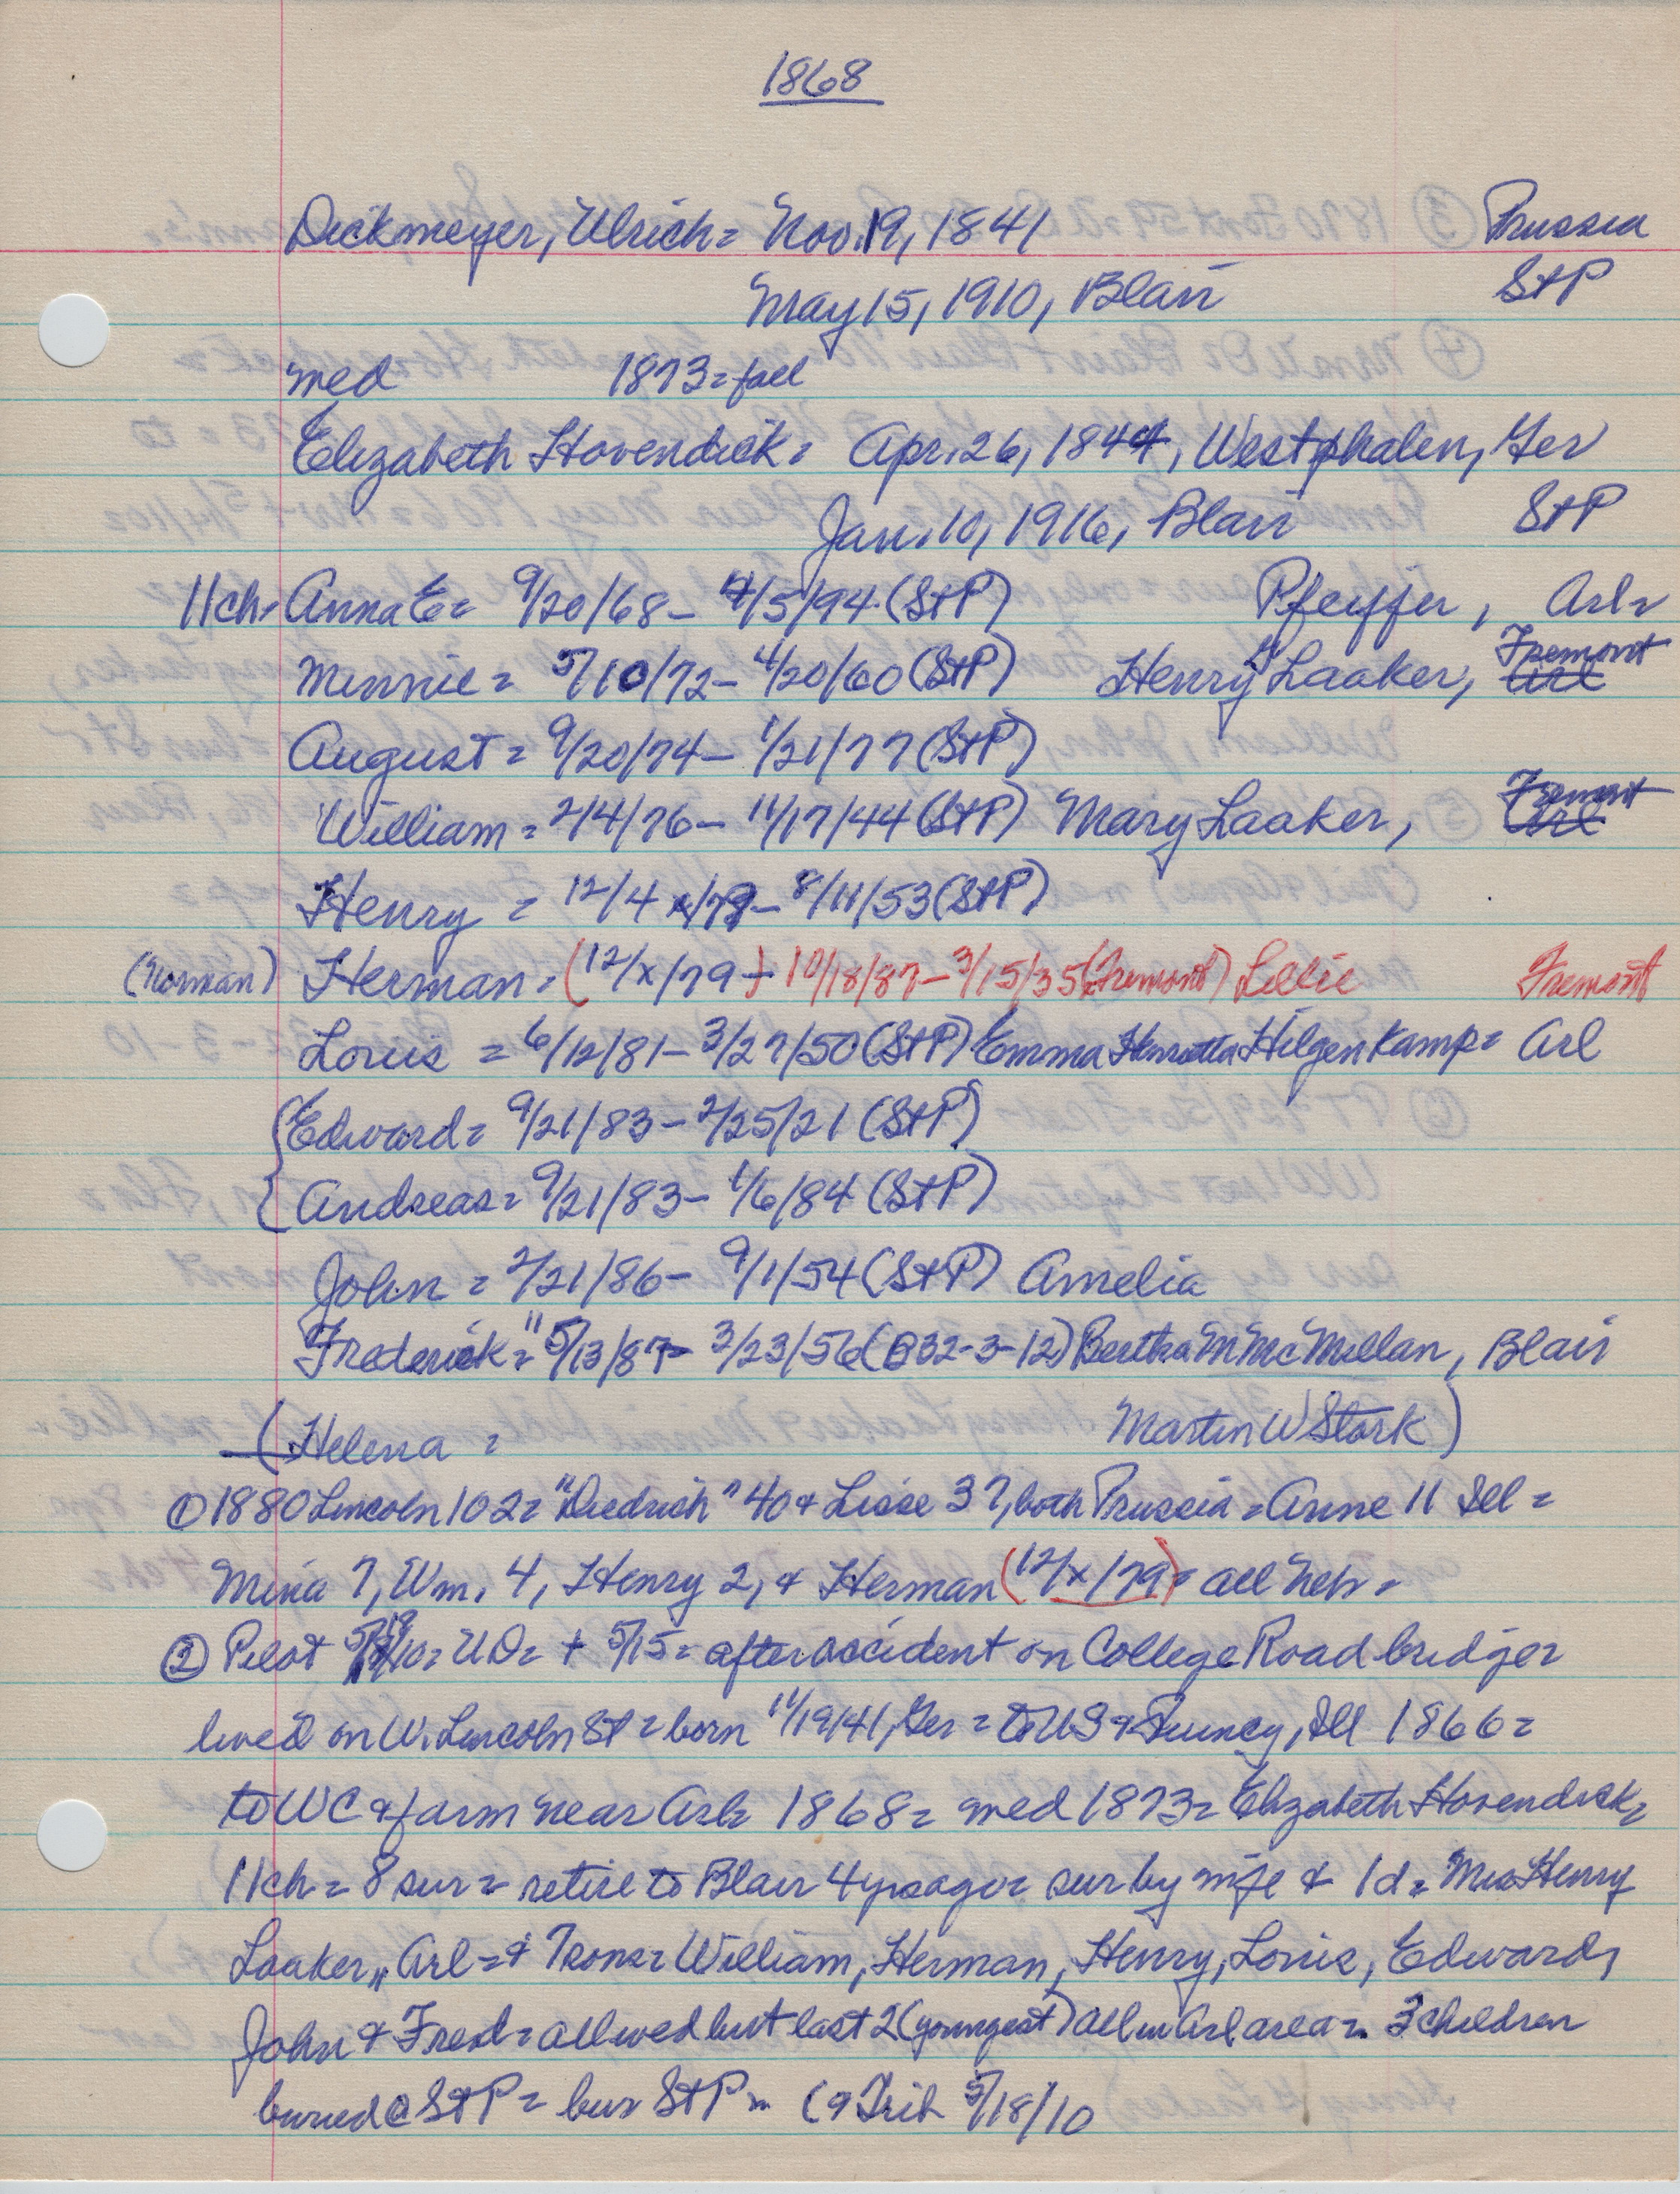 1868
Dickmeyer, Ulrich = Nov. 19, 1841 Prussia
May 15, 1910, Blair StP
med 1873 = fall
Elizabeth Hovendick = Apr. 26, 1844, Westphalen, Ger
Jan. 10, 1916, Blair StP
11ch = Anna E = 9/20/68 - 4/5/94 (StP) Pfeiffer, Arl =
Minnie = 5/10/72 - 4/20/60 (StP) Henry H Laaker, Fremont Arl
August = 9/20/74 - 1/21/77 (StP)
William = 2/4/76 - 11/17/44 (StP) Mary Laaker, Fremont Arl
Henry = 12/4 /79 - 8/11/53 (StP)
(Norman) Herman = (12/x/79 -) 10/18/87 - 3/15/35 (Fremont) Lillie Fremont
Louis = 6/12/81 - 3/27/50 (StP) Emma Henrietta Hilgenkamp = Arl
{Edward = 9/21/83 - 2/25/21 (StP)
{Andreas = 9/21/83 - 1/6/84 (StP)
John = 2/21/86 - 9/1/54 (StP) Amelia
Frederick = "5/13/87 - 3/23/56 (B32-3-12) Bertha M McMillan, Blair
(Helena = Martin W Stork)
① 1880 Lincoln 102 = "Diedrich" 40 & Lisse 37, both Prussia = Anne 11 Ill =
Mina 7, Wm. 4, Henry 2, & Herman (12/x/79) = all Neb =
② Pilot 5/ /10 = UD = + 5/15 = after accident on College Road bridge =
lived on W. Lincoln St = born 11/19/41, Ger = to US & Quincy, Ill 1866 =
to WC & farm near Arl = 1868 = med 1873 = Elizabeth Hovendick =
11ch = 8 sur = retire to Blair 4 yrs ago = sur by wife & 1d = Mrs Henry
Laaker, Arl = & 7 sons = William, Herman, Henry, Louis, Edward,
John & Fred = all wed but last 2 (youngest) all in Arl area = 3 children
buried @ StP = bur StP = (9 Trib 5/18/10